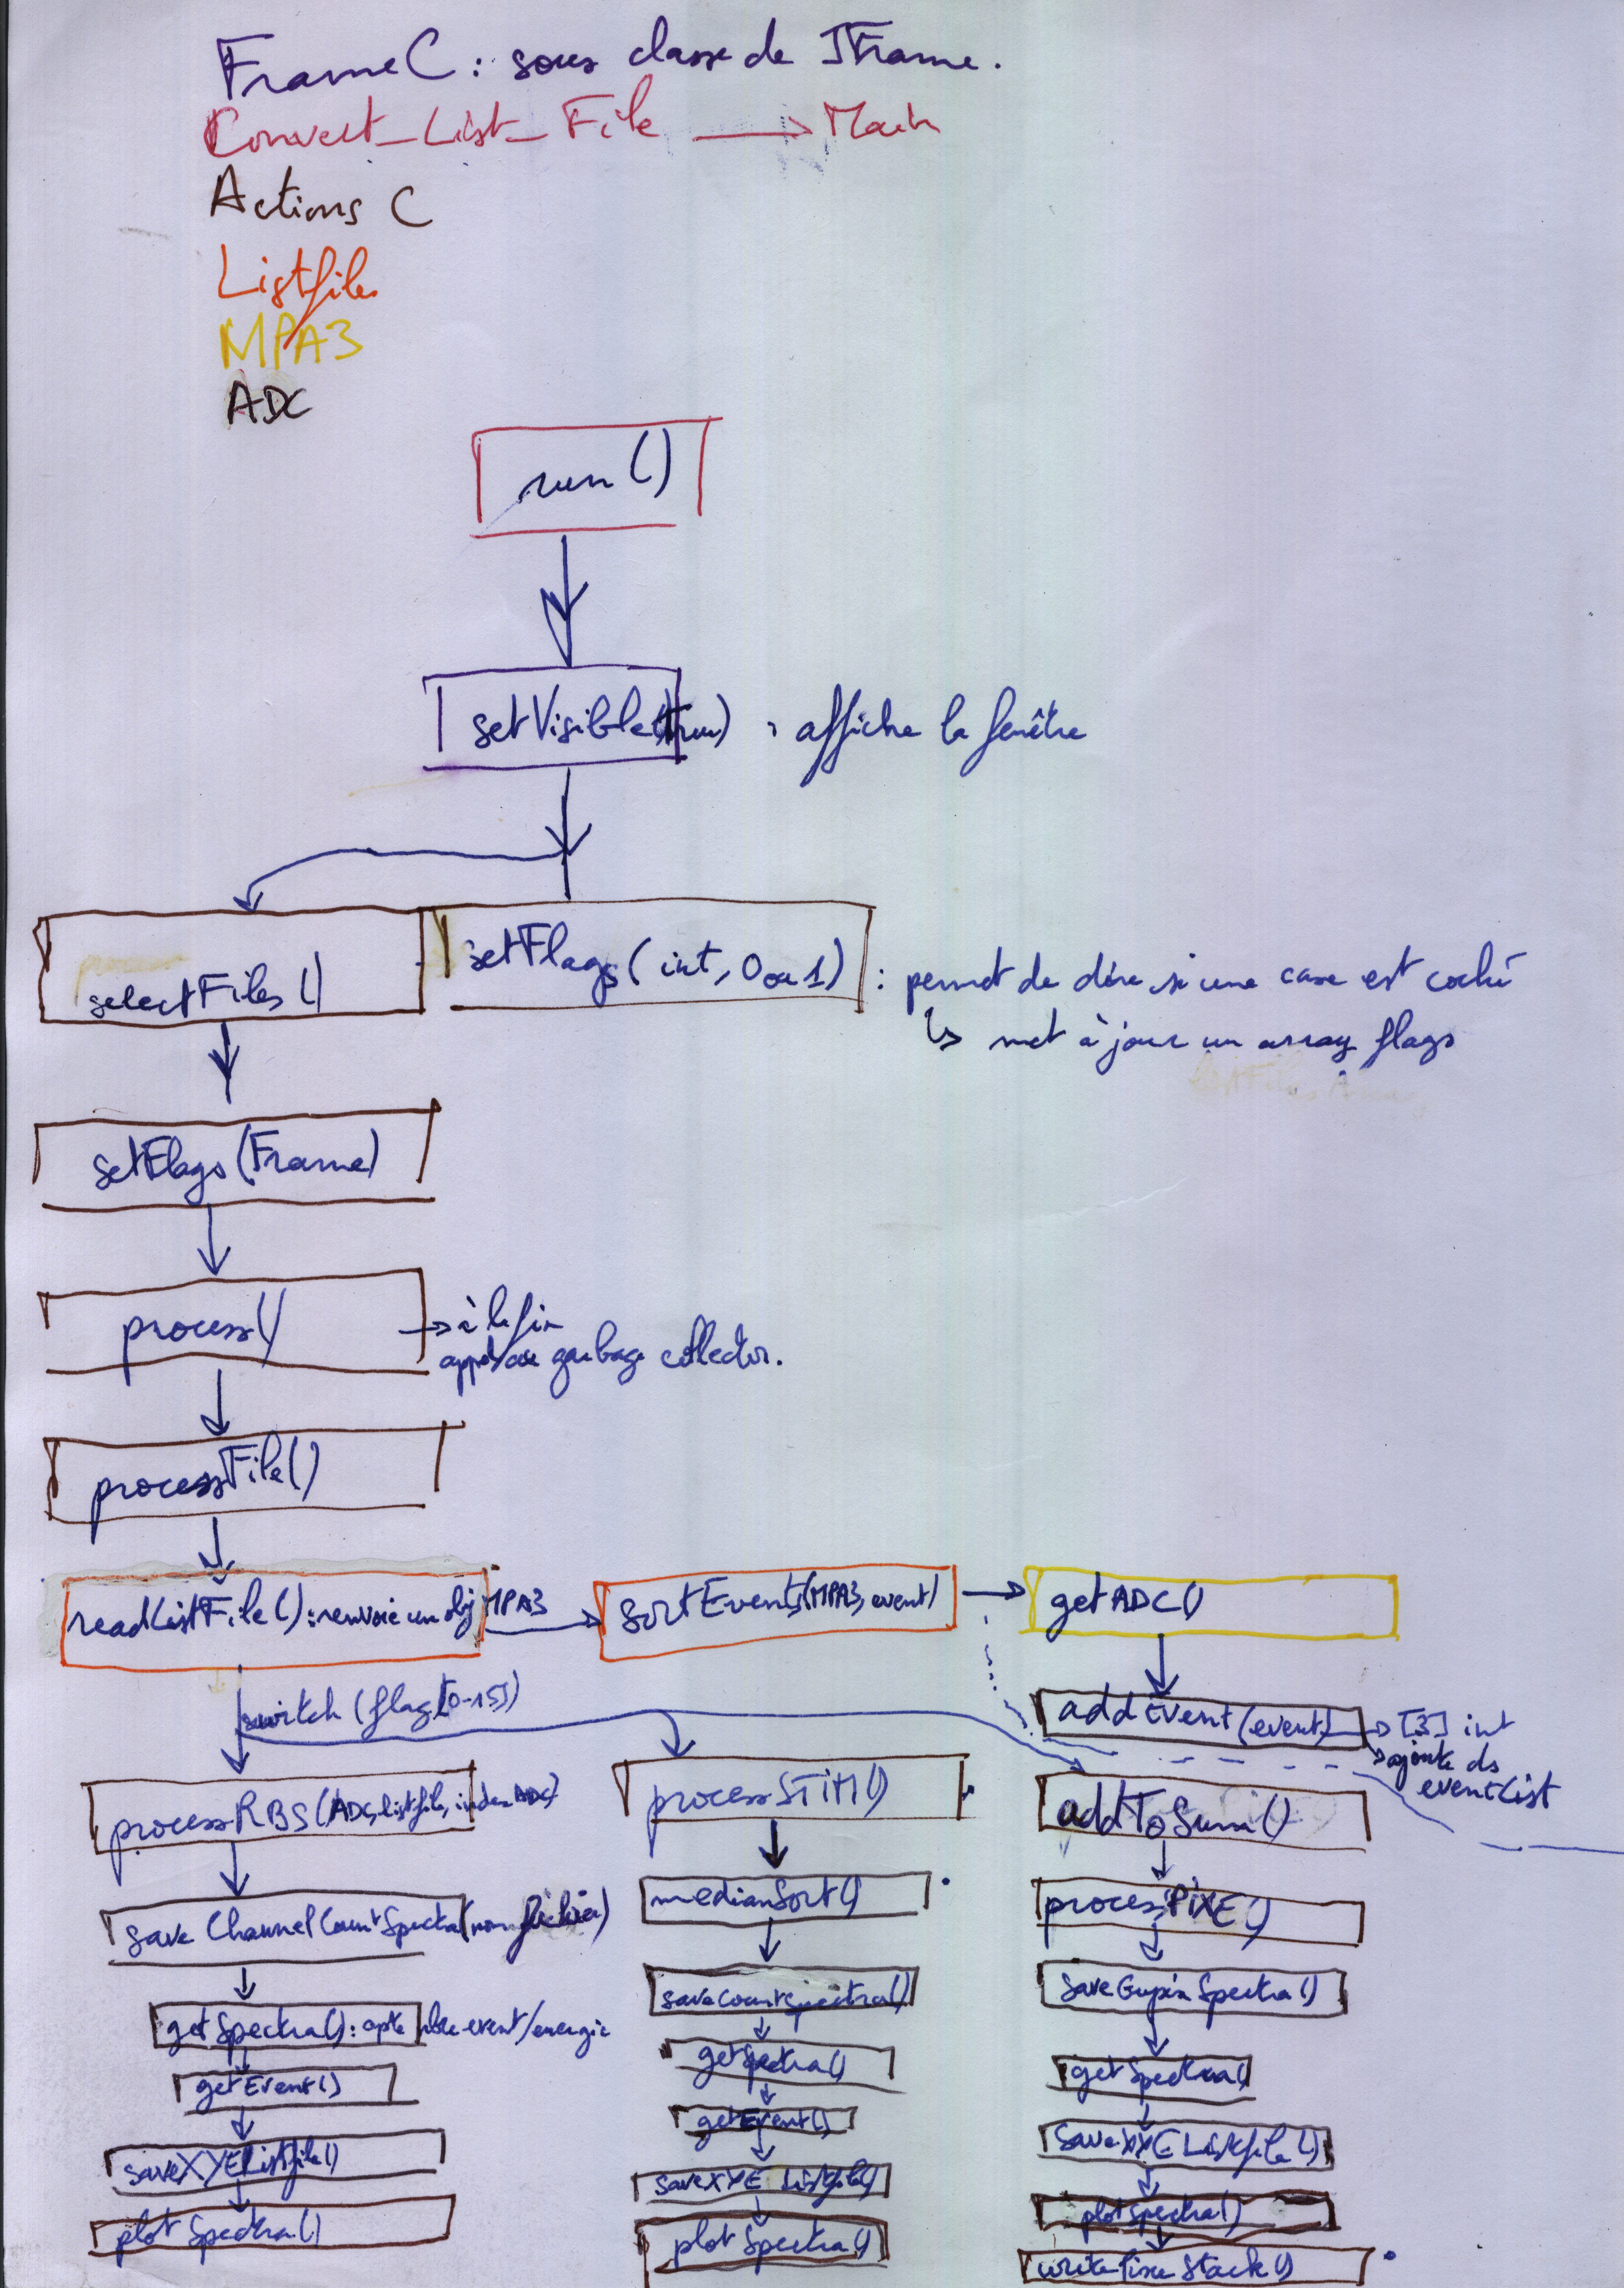 FrameC : sous classe de JFrame.
Convert_List_File → Main
Actions C
Listfiles
MPA3
ADC
run()
setVisible(true) : affiche la fenêtre
selectFiles()
setFlags(int, 0 ou 1) : permet de dire si une case est coché
↳ met à jour un array flags
setFlags(Frame)
process() → à la fin
appel au garbage collector.
processFile()
readListFile() : renvoie un obj MPA3
sortEvents(MPA3, event)
getADC()
switch (flag[0-15])
addEvent(event) → [3] int
ajoute ds
eventList
processRBS(ADC, listfile, index ADC)
processSTIM()
addToSum()
save ChannelCountSpectra(nom fichier)
medianSort()
processPIXE()
getSpectra() : nbre event/energie
saveCountSpectra()
saveGupixSpectra()
getEvent()
getSpectra()
getSpectra()
saveXYEListfile()
getEvent()
saveXYEListfile()
plotSpectra()
saveXYEListfile()
plotSpectra()
plotSpectra()
writePixeStack()